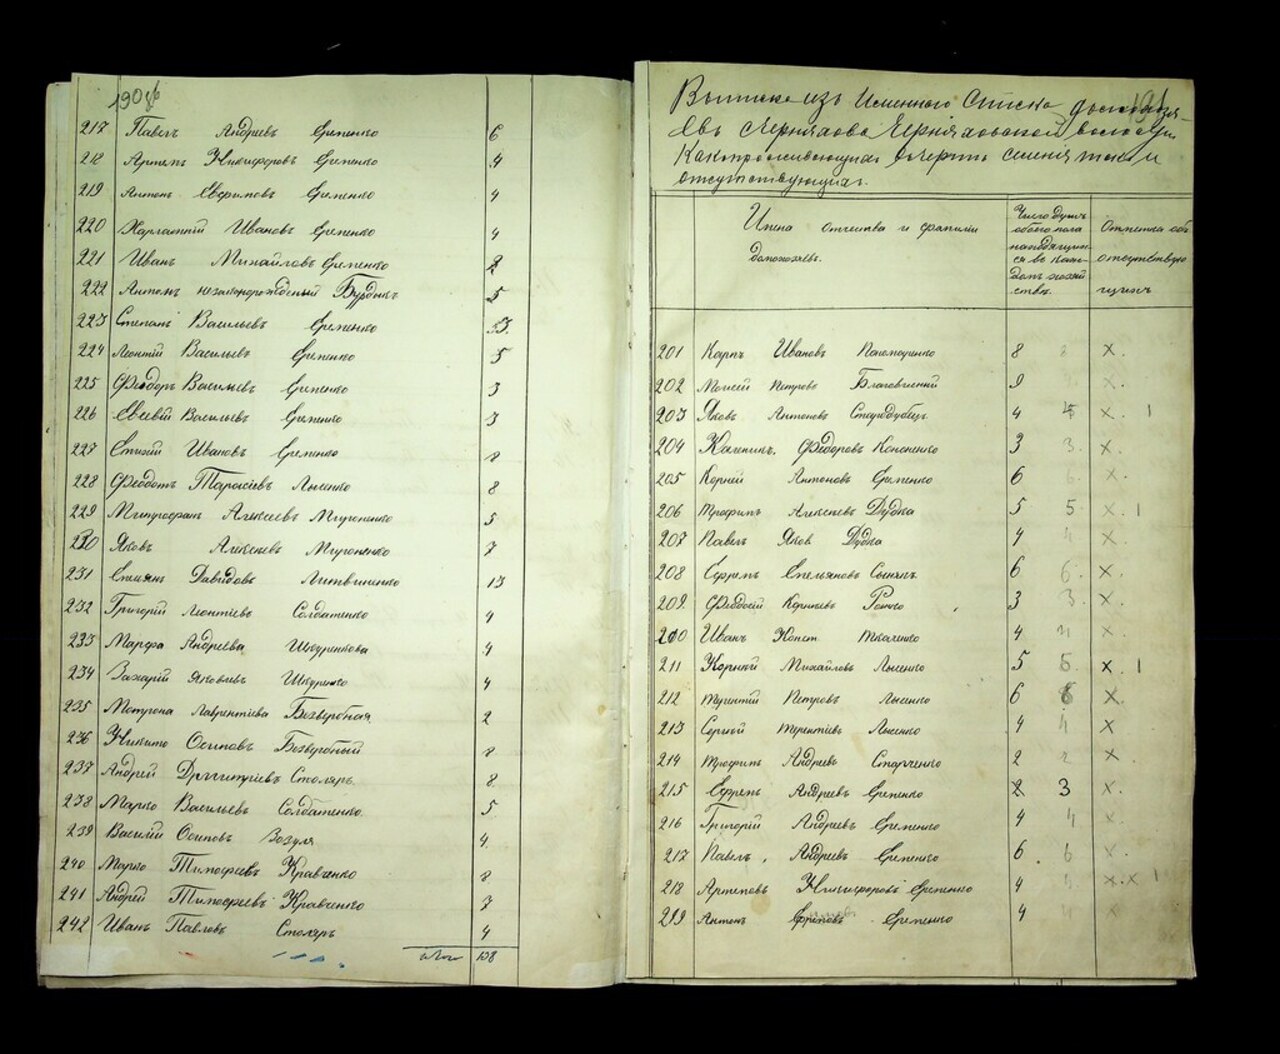 217 Павелъ Андреевъ Еременко 6
218 Артемъ Никифоровъ Еременко 4
219 Антонъ Евфимовъ Еременко 4
220 Харлампий Ивановъ Еременко 4
221 Иванъ Михайловъ Еременко 2
222 Антонъ незаконорожденный 5
223 Степанъ Васильевъ Еременко 3
224 Леонтій Васильевъ Еременко 5
225 Феодоръ Васильевъ Еременко 3
226 Евсевій Васильевъ Еременко 3
227 Ивановъ Еременко
228 Феодотъ Тарасіевъ Лысенко 8
229 Митрофанъ Алексеевъ Мироненко 5
230 Яковъ Алексеевъ Мироненко 7
231 Емельянъ Давидовъ Литвиненко 13
232 Григорій Леонтіевъ Солдатенко 4
233 Марфа Андреева Шкуренкова 4
234 Захарій Яковлевъ Шкуренко 4
235 Матрона Лаврентіева Безвербная 2
236 Никита Осиповъ Безвербный
237 Андрей Дмитріевъ Столяръ 8
238 Марко Васильевъ Солдатенко 5
239 Василій Осиповъ 4
240 Марко Тимофеевъ Кравченко
241 Андрей Тимофеевъ Кравченко 7
242 Иванъ Павловъ Столяръ 4
итого 138
Выписка изъ Именного Списка
волости
какъ проживающихъ также и
отсутствующихъ.
Имена отчества и фамиліи
домохозяевъ.
Число душъ
обоего пола
находящих
ся въ каж
домъ хозяй
стве.
Отметка объ
отсутствую
щихъ
201 Карпъ Ивановъ Пономаренко 8 х.
202 Моисей Петровъ 9 х.
203 Яковъ Антоновъ Стародубецъ 4 х. 1
204 Федоровъ Кононенко 3 3. х.
205 Корней Антоновъ Еременко 6 6. х.
206 Трофимъ Алексеевъ Дудка 5 5. х. 1
207 Павелъ Яков Дудка 4 4 х.
208 Ефремъ Емельяновъ 6 6. х.
209. Феодосій Корнеевъ 3 3. х.
210 Иванъ Конст Ткаченко 4 4 х.
211 Корній Михайловъ Лысенко 5 5. х. 1
212 Терентій Петровъ Лысенко 6 6 х.
213 Сергей Терентіевъ Лысенко 4 4 х
214 Трофимъ Андреевъ Старченко 2 2 х.
215 Ефремъ Андреевъ Еременко 2 3 х.
216 Григорій Андреевъ Еременко 4 4 х.
217 Павелъ Андреевъ Еременко 6. 6 х.
218 Артемовъ Никифоровъ Еременко 4 4. х.х 1
219 Антонъ Еременко 4 4 х